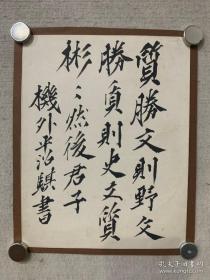 質勝文則野文
勝質則史文質
彬々然後君子
機外平治騏書